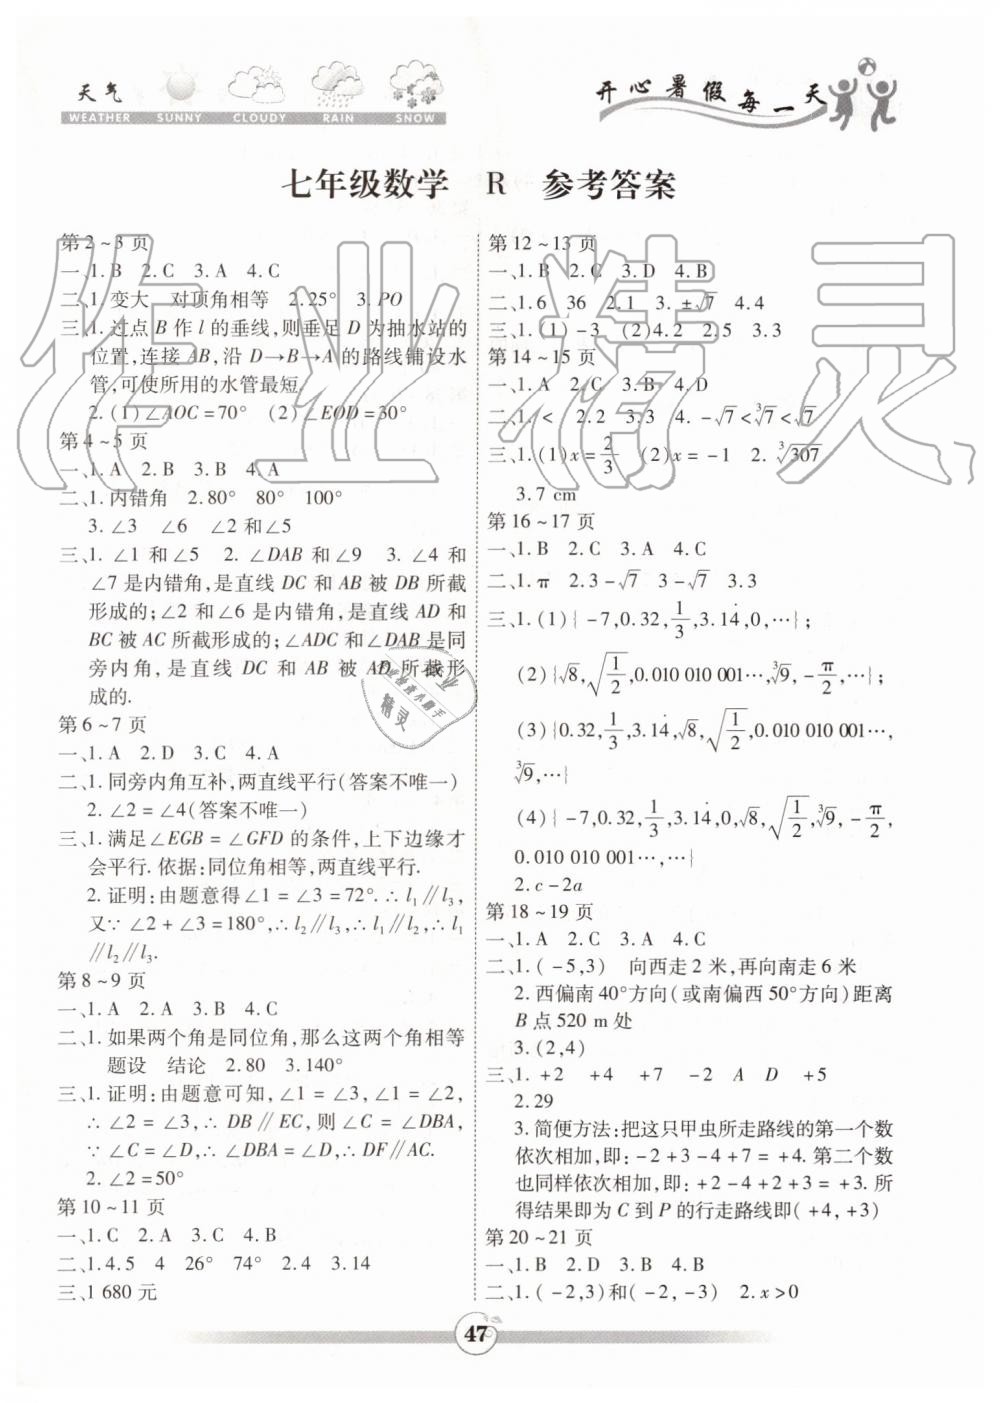 天气
WEATHER SUNNY CLOUDY RAIN SNOW
开心暑假每一天
七年级数学 R 参考答案
第2~3页
一、1. B 2. C 3. A 4. C
二、1. 变大 对顶角相等 2. 25° 3. PO
三、1. 过点 B 作 l 的垂线,则垂足 D 为抽水站的
位置,连接 AB,沿 D→B→A 的路线铺设水
管,可使所用的水管最短.
2. (1)∠AOC=70° (2)∠EOD=30°
第4~5页
一、1. A 2. B 3. B 4. A
二、1. 内错角 2. 80° 80° 100°
3. ∠3 ∠6 ∠2 和∠5
三、1. ∠1 和∠5 2. ∠DAB 和∠9 3. ∠4 和
∠7 是内错角,是直线 DC 和 AB 被 DB 所截
形成的;∠2 和∠6 是内错角,是直线 AD 和
BC 被 AC 所截形成的;∠ADC 和∠DAB 是同
旁内角,是直线 DC 和 AB 被 AD 所截形
成的.
第6~7页
一、1. A 2. D 3. C 4. A
二、1. 同旁内角互补,两直线平行(答案不唯一)
2. ∠2=∠4(答案不唯一)
三、1. 满足∠EGB=∠GFD 的条件,上下边缘才
会平行. 依据:同位角相等,两直线平行.
2. 证明:由题意得∠1=∠3=72°.∴ l₁∥l₃,
又∵ ∠2+∠3=180°,∴ l₂∥l₃,∴ l₁∥l₂,∴ l₁
∥l₂∥l₃.
第8~9页
一、1. A 2. A 3. B 4. C
二、1. 如果两个角是同位角,那么这两个角相等
题设 结论 2. 80 3. 140°
三、1. 证明:由题意可知,∠1=∠3,∠1=∠2,
∴ ∠2=∠3,∴ DB∥EC,则∠C=∠DBA,
∵ ∠C=∠D,∴ ∠DBA=∠D,∴ DF∥AC.
2. ∠2=50°
第10~11页
一、1. C 2. A 3. C 4. B
二、1. 4.5 4 26° 74° 2. 4 3. 14
三、1 680 元
第12~13页
一、1. B 2. C 3. D 4. B
二、1. 6 36 2. 1 3. ±√7 4. 4
三、1. (1)-3 (2)4. 2 2. 5 3. 3
第14~15页
一、1. A 2. C 3. B 4. D
二、1. < 2. 2 3. 3 4. -√7<∛7<√7
三、1. (1)x=2/3 (2)x=-1 2. ∛307
3. 7 cm
第16~17页
一、1. B 2. C 3. A 4. C
二、1. π 2. 3-√7 3-√7 3. 3
三、1. (1){-7,0.32,1/3,3.14̇,0,…};
(2){√8,√(1/2),0.010 010 001…,∛9,-π/2,…};
(3){0.32,1/3,3.14̇,√8,√(1/2),0.010 010 001…,
∛9,…}
(4){-7,0.32,1/3,3.14̇,0,√8,√(1/2),∛9,-π/2,
0.010 010 001…,…}
2. c-2a
第18~19页
一、1. A 2. C 3. A 4. C
二、1. (-5,3) 向西走 2 米,再向南走 6 米
2. 西偏南 40°方向(或南偏西 50°方向)距离
B 点 520 m 处
3. (2,4)
三、1. +2 +4 +7 -2 A D +5
2. 29
3. 简便方法:把这只甲虫所走路线的第一个数
依次相加,即:-2+3-4+7=+4. 第二个数
也同样依次相加,即:+2-4+2+3=+3. 所
得结果即为 C 到 P 的行走路线即(+4,+3)
第20~21页
一、1. B 2. D 3. B 4. B
二、1. (-2,3)和(-2,-3) 2. x>0
47
作业精灵